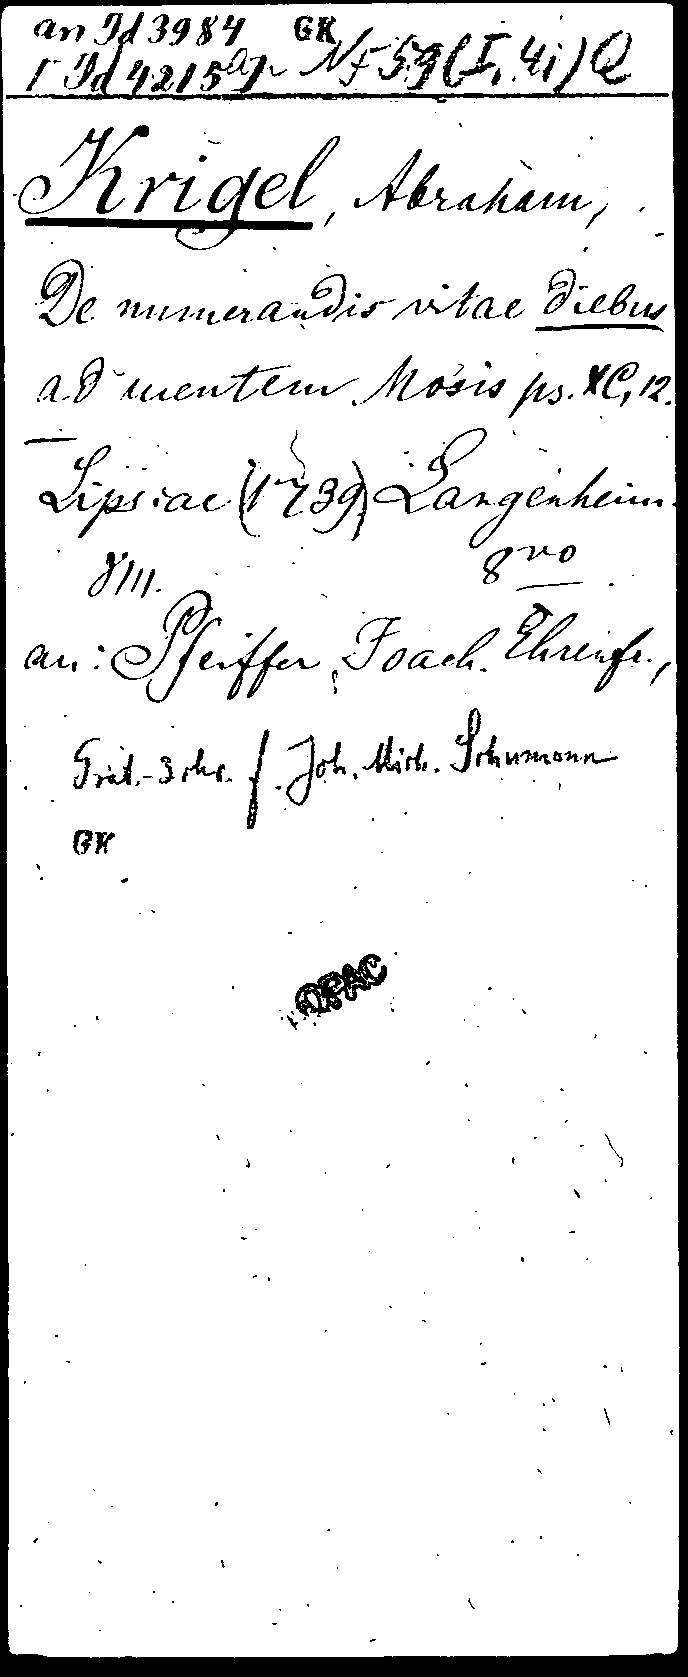 an Id 3984 GK
Id 4215 Nf 59 (I, 4i) Q
Krigel, Abraham,
De numerandis vitae diebus
ad mentem Mosis ps. XC, 12.
Lipsiae (1739) Langenheim.
VIII. 8vo
an: Pfeiffer, Joach. Ehrenfr.,
Grat.-Schr. f. Joh. Mich. Schumann
GK
OPAC